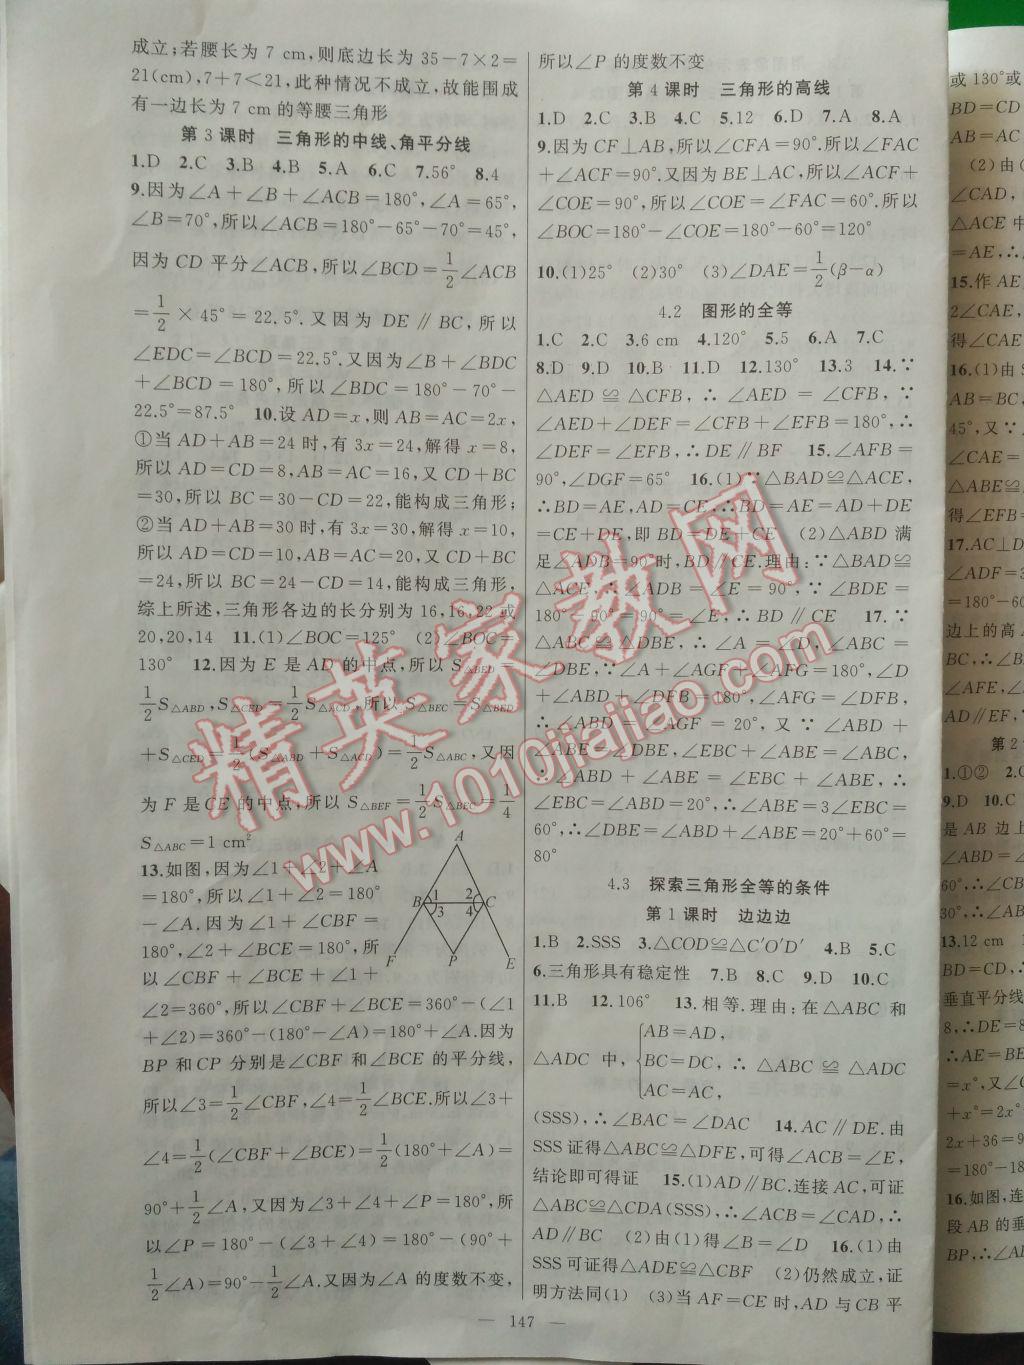 成立;若腰长为 7 cm,则底边长为 35-7×2=
21(cm),7+7<21,此种情况不成立,故能围成
有一边长为 7 cm 的等腰三角形
第 3 课时 三角形的中线、角平分线
1.D 2.C 3.B 4.B 5.A 6.C 7.56° 8.4
9.因为∠A+∠B+∠ACB=180°,∠A=65°,
∠B=70°,所以∠ACB=180°-65°-70°=45°,
因为 CD 平分∠ACB,所以∠BCD=1/2∠ACB
=1/2×45°=22.5°.又因为 DE∥BC,所以
∠EDC=∠BCD=22.5°.又因为∠B+∠BDC
+∠BCD=180°,所以∠BDC=180°-70°-
22.5°=87.5° 10.设 AD=x,则 AB=AC=2x,
①当 AD+AB=24 时,有 3x=24,解得 x=8,
所以 AD=CD=8,AB=AC=16,又 CD+BC
=30,所以 BC=30-CD=22,能构成三角形;
②当 AD+AB=30 时,有 3x=30,解得 x=10,
所以 AD=CD=10,AB=AC=20,又 CD+BC
=24,所以 BC=24-CD=14,能构成三角形,
综上所述,三角形各边的长分别为 16,16,22 或
20,20,14 11.(1)∠BOC=125° (2)∠BOC=
130° 12.因为 E 是 AD 的中点,所以 S△BED=
1/2S△ABD,S△CED=1/2S△ACD,所以 S△BEC=S△BED
+S△CED=1/2(S△ABD+S△ACD)=1/2S△ABC,又因
为 F 是 CE 的中点,所以 S△BEF=1/2S△BEC=1/4
S△ABC=1 cm²
13.如图,因为∠1+∠2+∠A
=180°,所以∠1+∠2=180°
-∠A.因为∠1+∠CBF=
180°,∠2+∠BCE=180°,所
以∠CBF+∠BCE+∠1+
∠2=360°,所以∠CBF+∠BCE=360°-(∠1
+∠2)=360°-(180°-∠A)=180°+∠A.因为
BP 和 CP 分别是∠CBF 和∠BCE 的平分线,
所以∠3=1/2∠CBF,∠4=1/2∠BCE.所以∠3+
∠4=1/2(∠CBF+∠BCE)=1/2(180°+∠A)=
90°+1/2∠A,又因为∠3+∠4+∠P=180°,所
以∠P=180°-(∠3+∠4)=180°-(90°+
1/2∠A)=90°-1/2∠A.又因为∠A 的度数不变,
A
B 1 2 C
3 4
F P E
所以∠P 的度数不变
第 4 课时 三角形的高线
1.D 2.C 3.B 4.C 5.12 6.D 7.A 8.A
9.因为 CF⊥AB,所以∠CFA=90°.所以∠FAC
+∠ACF=90°.又因为 BE⊥AC,所以∠ACF+
∠COE=90°,所以∠COE=∠FAC=60°.所以
∠BOC=180°-∠COE=180°-60°=120°
10.(1)25° (2)30° (3)∠DAE=1/2(β-α)
4.2 图形的全等
1.C 2.C 3.6 cm 4.120° 5.5 6.A 7.C
8.D 9.D 10.B 11.D 12.130° 13.3 14.∵
△AED≌△CFB,∴∠AED=∠CFB,∵
∠AED+∠DEF=∠CFB+∠EFB=180°,∴
∠DEF=∠EFB,∴DE∥BF 15.∠AFB=
90°,∠DGF=65° 16.(1)∵△BAD≌△ACE,
∴BD=AE,AD=CE,∴BD=AE=AD+DE
=CE+DE,即 BD=DE+CE (2)△ABD 满
足∠ADB=90°时,BD∥CE.理由:∵△BAD≌
△ACE,∴∠ADB=∠E=90°,∵∠BDE=
180°-90°=90°=∠E,∴BD∥CE 17.∵
△ABC≌△DBE,∴∠A=∠D,∠ABC=
∠DBE,∵∠A+∠AGF+∠AFG=180°,∠D
+∠ABD+∠DFB=180°,∠AFG=∠DFB,
∴∠ABD=∠AGF=20°,又∵∠ABD+
∠ABE=∠DBE,∠EBC+∠ABE=∠ABC,
∴∠ABD+∠ABE=∠EBC+∠ABE,∴
∠EBC=∠ABD=20°,∴∠ABE=3∠EBC=
60°,∴∠DBE=∠ABD+∠ABE=20°+60°=
80°
4.3 探索三角形全等的条件
第 1 课时 边边边
1.B 2.SSS 3.△COD≌△C′O′D′ 4.B 5.C
6.三角形具有稳定性 7.B 8.C 9.D 10.C
11.B 12.106° 13.相等.理由:在△ABC 和
△ADC 中,
AB=AD,
BC=DC,∴△ABC≌△ADC
AC=AC,
(SSS),∴∠BAC=∠DAC 14.AC∥DE.由
SSS 证得△ABC≌△DFE,可得∠ACB=∠E,
结论即可得证 15.(1)AD∥BC.连接 AC,可证
△ABC≌△CDA(SSS),∴∠ACB=∠CAD,∴
AD∥BC (2)由(1)得∠B=∠D 16.(1)由
SSS 可证得△ADE≌△CBF (2)仍然成立,证
明方法同(1) (3)当 AF=CE 时,AD 与 CB 平
— 147 —
或 130°或
BD=CD
AB=AC
(2)由(
∠CAD,
△ACE 中
=AE,∴
15.作 AE
2∠CAE,
得∠CAE
16.(1)由 S
AB=BC,
45°,又∵
∠CAE=
△ABE≌
得∠EFB=
17.AC⊥D
∠ADF=3
=180°-60
边上的高 A
BC,∴∠B
∠AFE,∠
AD∥EF,∵
第 2
1.①② 2.
9.D 10.C
是 AB 边上
∠ABD=
60°,∴∠CB
30°,∴∠AB
13.12 cm
BD=CD,∴
垂直平分线
8,∴DE=8
∴AE=BE
=x°,又∠C
+x°=2x°
2x+36=9
=180°-18
16.如图,连
段 AB 的垂
BP,∴∠A
精英家教网
www.1010jiajiao.com